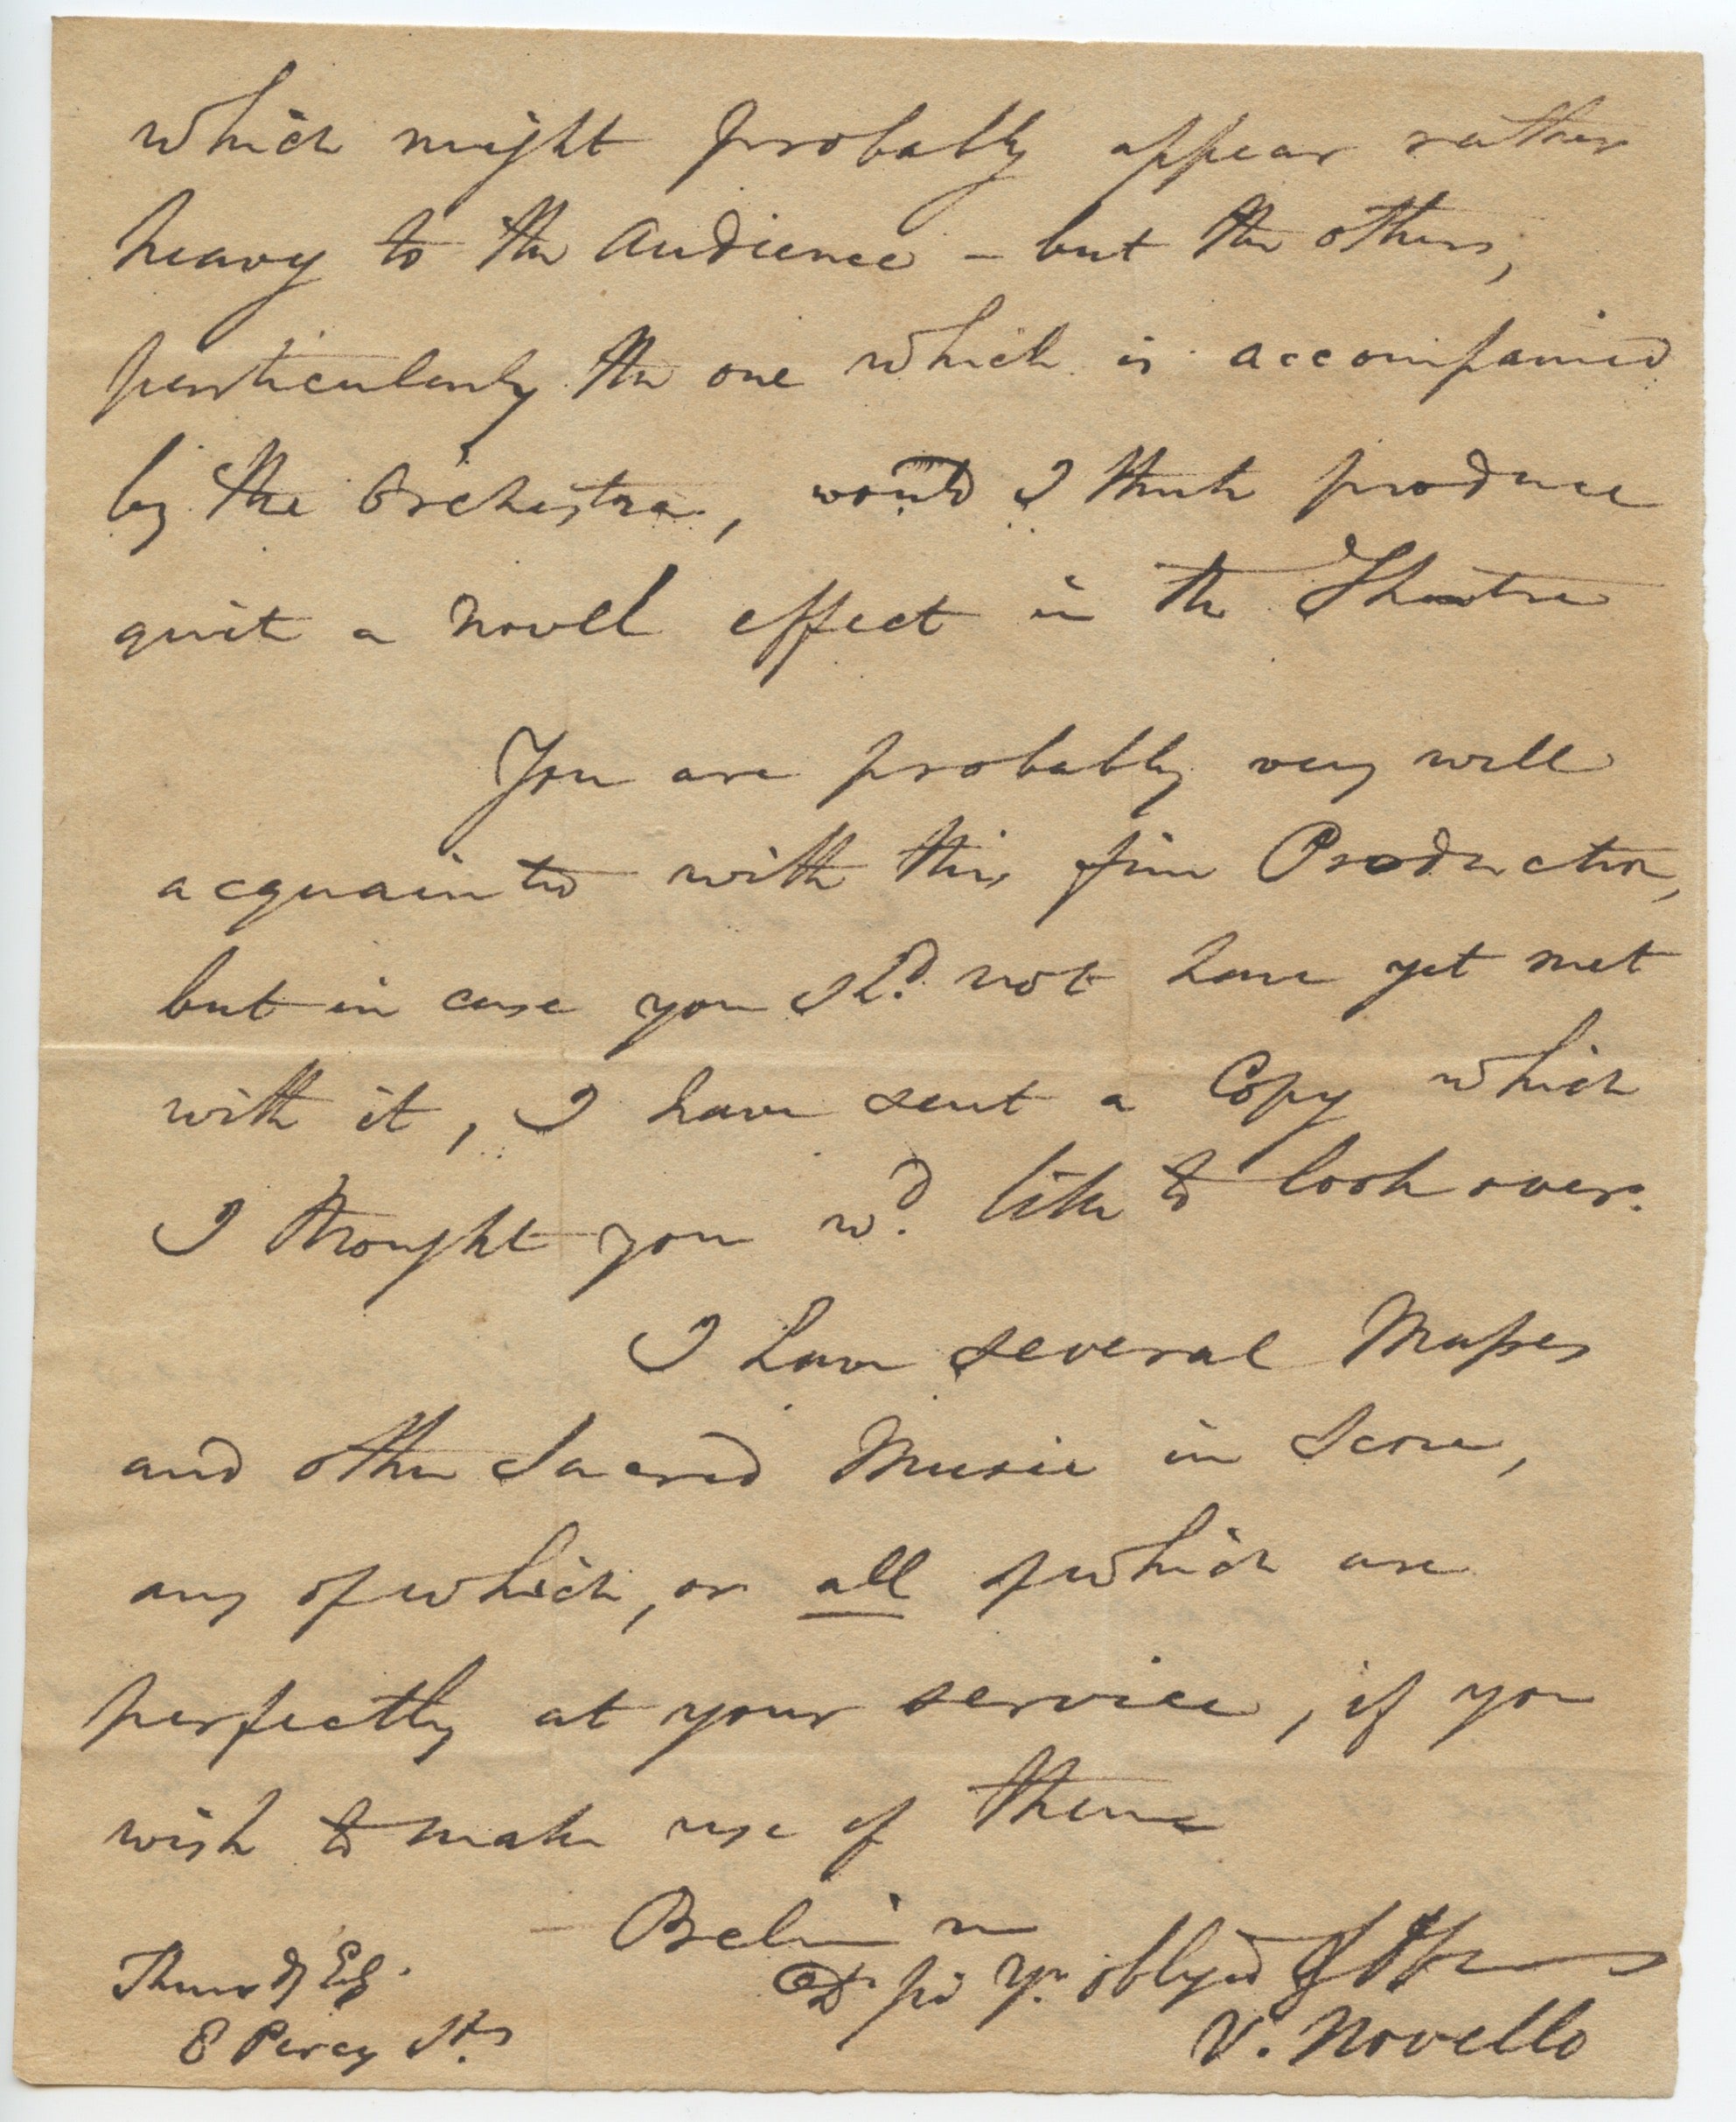 which might probably appear rather
heavy to the Audience – but the others,
particularly the one which is accompanied
by the Orchestra, would I think produce
quite a novel effect in the Theatre
You are probably very well
acquainted with this fine Production,
but in case you shd. not have yet met
with it, I have sent a Copy which
I thought you wd. like to look over.
I have several Masses
and other Sacred Music in Score,
any of which, or all of which are
perfectly at your service, if you
wish to make use of them
– Believe me
Dr Sir Yr. obliged
V. Novello
Thursdy Evg.
8 Percy St.